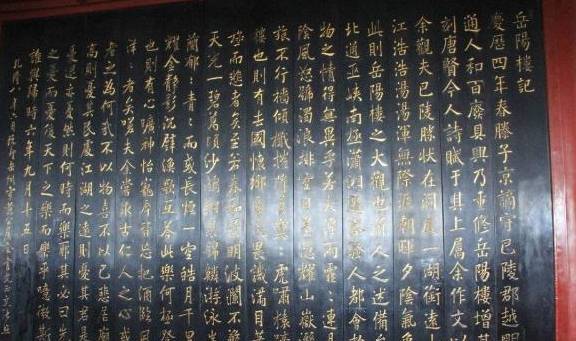 岳陽樓記
慶曆四年春滕子京謫守巴陵郡越明
通人和百廢具興乃重修岳陽樓增其
刻唐賢今人詩賦于其上属余作文以
余觀夫巴陵勝狀在洞庭一湖銜遠山
江浩浩湯湯渾無際涯朝暉夕陰氣象
此則岳陽樓之大觀也前人之述備矣
北通巫峽南極瀟湘遷客騷人都會於
物之情得無異乎若夫霪雨霏:連月
陰風怒號濁浪排空日星隱耀山嶽潛
旅不行檣傾楫摧薄暮冥:虎嘯猿啼
樓也則有去國懷鄉憂讒畏譏滿目蕭
極而悲者矣至若春和景明波瀾不驚
天光一碧萬頃沙鷗翔集錦鱗游泳岸
蘭郁:青:而或長煙一空皓月千里
耀金靜影沉璧漁歌互答此樂何極登
也則有心曠神怡寵辱皆忘把酒臨風
洋:者矣嗟夫余嘗求古仁人之心或
者之為何哉不以物喜不以己悲居廟
高則憂其民處江湖之遠則憂其君是
憂退亦憂然則何時而樂耶其必曰先
之憂而憂後天下之樂而樂乎噫微斯
誰與歸時六年九月十五日